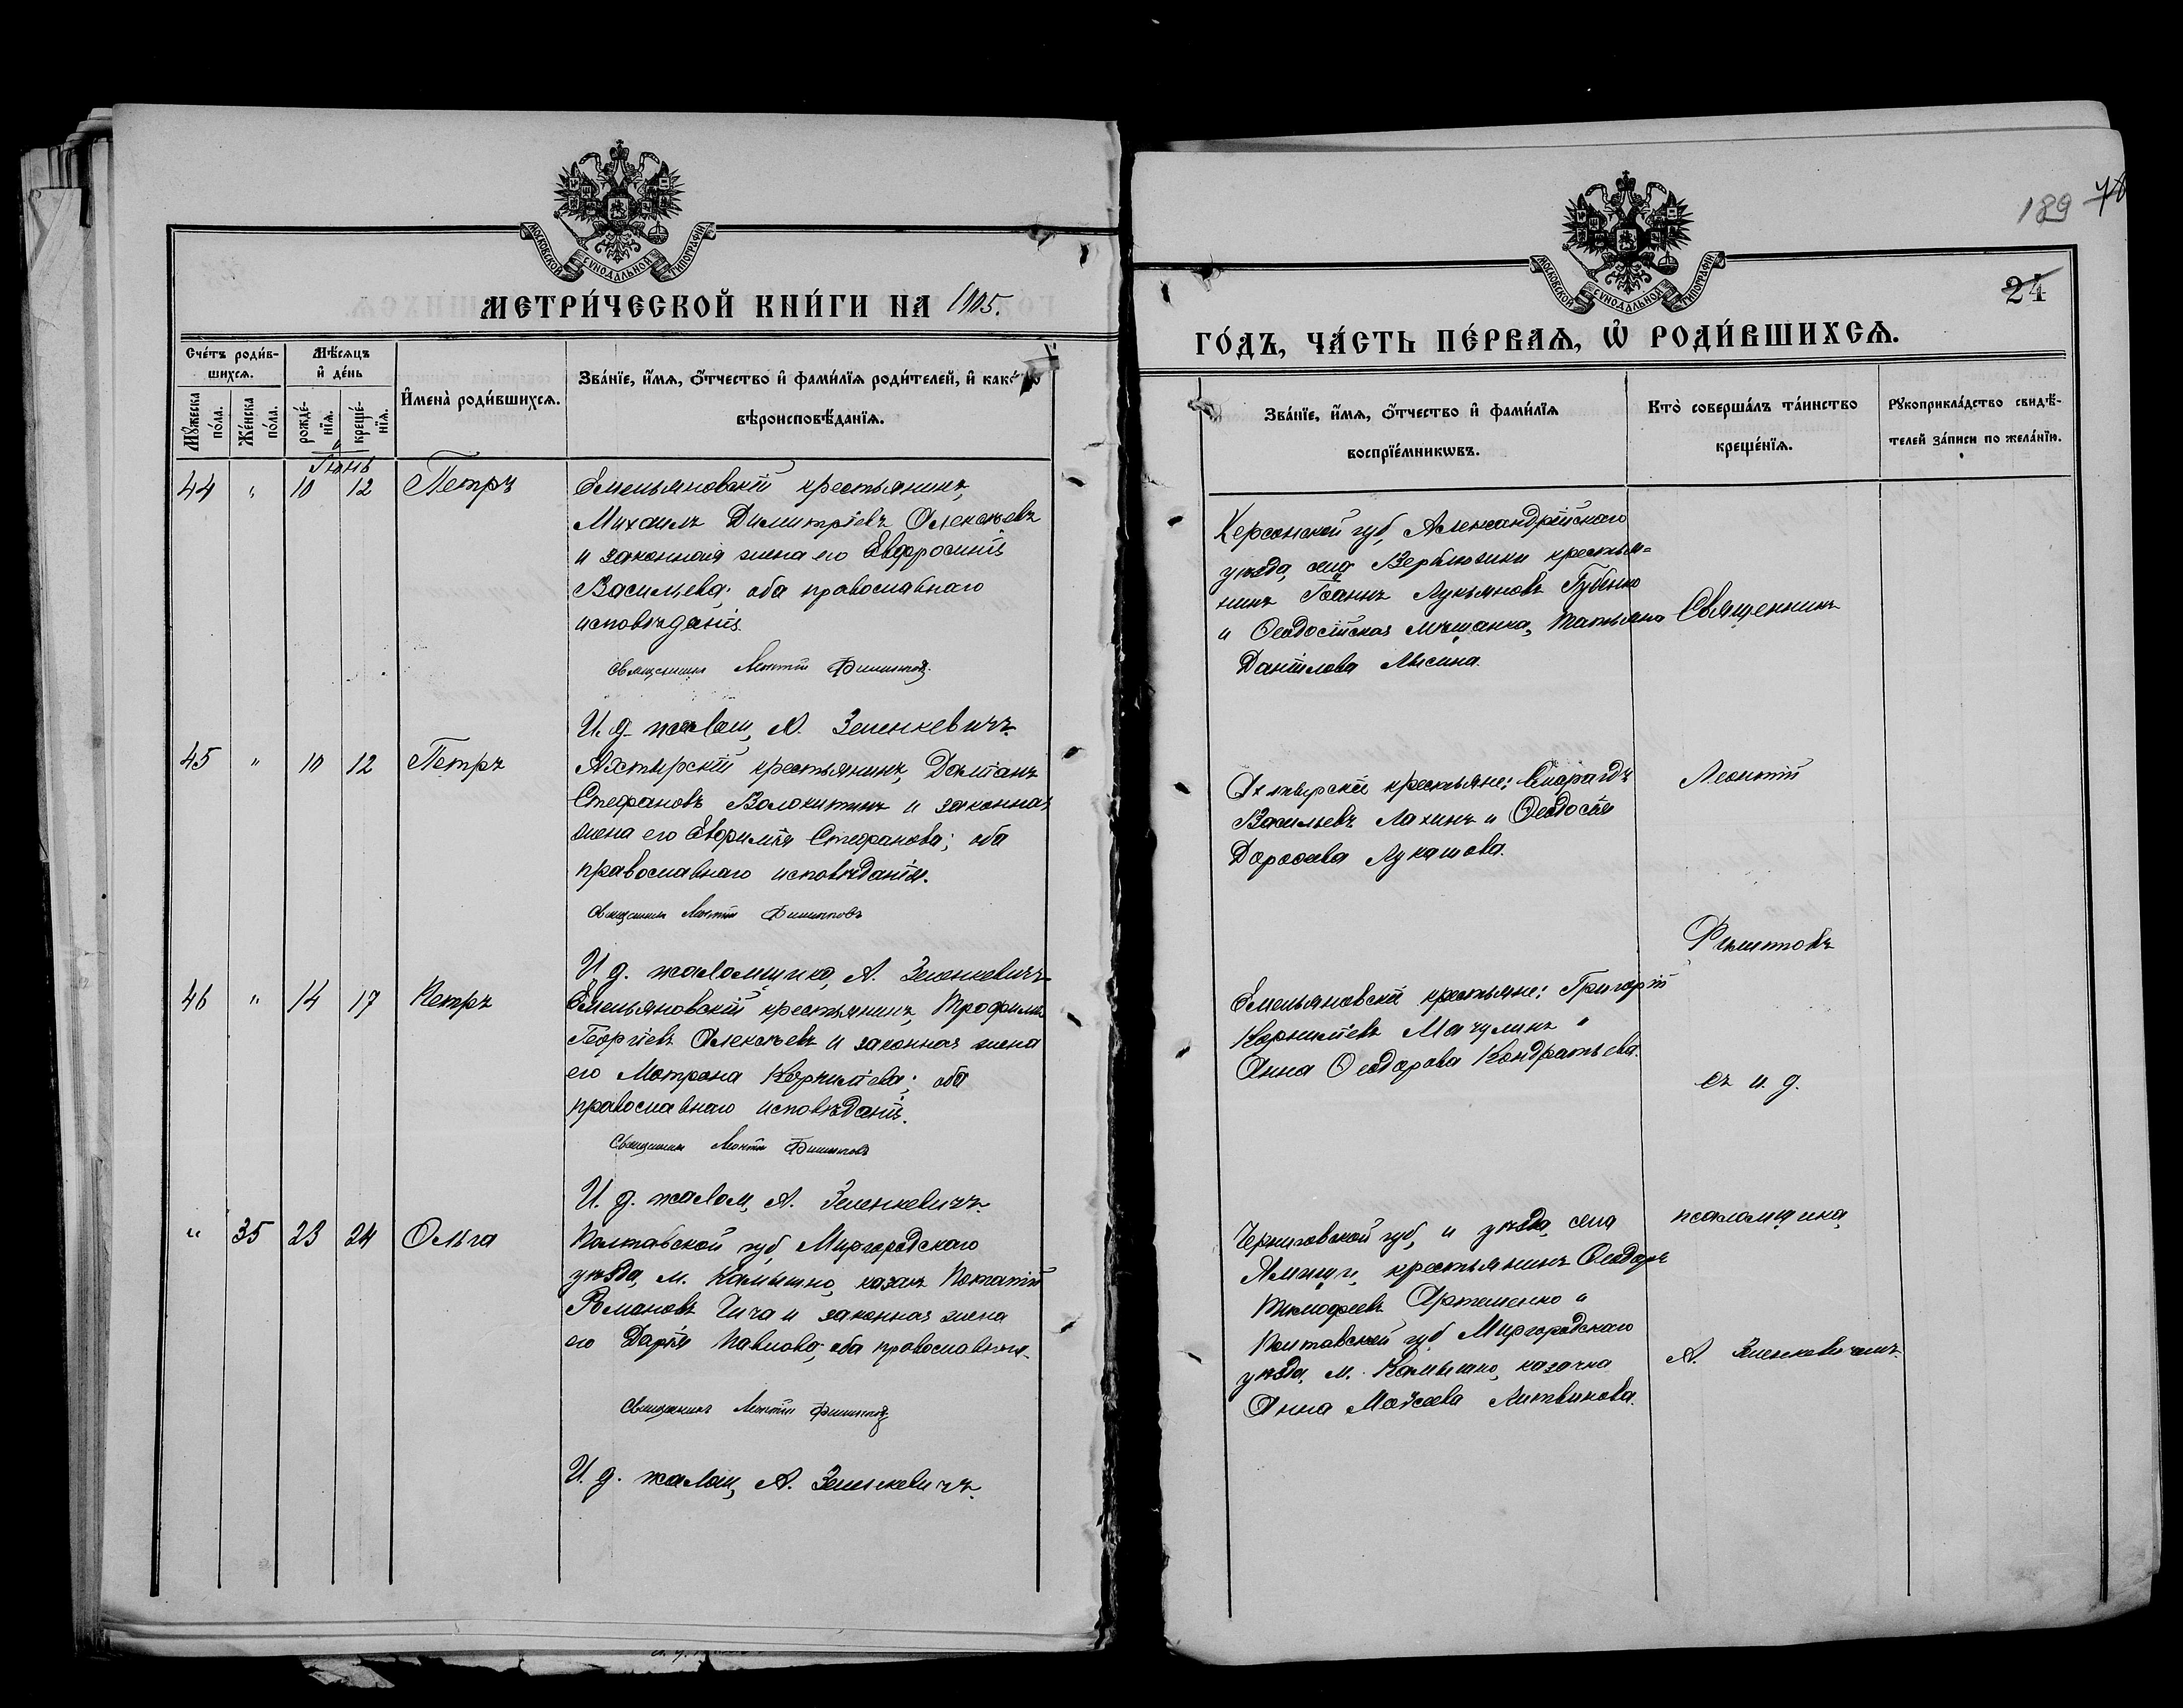 МОСКОВСКОЙ СУНОДАЛЬНОЙ ТИПОГРАФІИ
МЕТРИ́ЧЕСКОЙ КНИ́ГИ НА 1905.
Сче́тъ роди́в-
шихсѧ.
Мѣ́сѧцъ
и҆ де́нь
И҆мена̀ роди́вшихсѧ.
Зва́нїе, и҆́мѧ, ѻ҆́тчество и҆ фами́лїѧ роди́телей, и҆ како́гѡ
вѣроисповѣ́данїѧ.
Мꙋ́жеска
по́ла.
Же́нска
по́ла.
рожде́-
нїѧ.
креще́-
нїѧ.
Іюнь
44 " 10 12 Петръ
Емельяновскій крестьянинъ,
Михаилъ Димитріевъ Алексѣевъ
и законная жена его Евфросинія
Васильева; оба православнаго
исповѣданія.
Священникъ Леонтій Филипповъ.
И. д. псалом, А. Зеленкевичъ.
45 " 10 12 Петръ
Ахтырскій крестьянинъ, Даміанъ
Стефановъ Волокитинъ и законная
жена его Евфимія Стефанова; оба
православнаго исповѣданія.
Священникъ Леонтій Филипповъ
И. д. псаломщика, А. Зеленкевичъ
46 " 14 17 Петръ
Емельяновскій крестьянинъ, Трофимъ
Георгіевъ Алексѣевъ и законная жена
его Матрона Корнилієва; оба
православнаго исповѣданія.
Священникъ Леонтій Филипповъ
И. д. псалом, А. Зеленкевичъ.
" 35 23 24 Ольга
Полтавской губ, Миргородскаго
уѣзда, м. Камышно, казакъ Потапій
Романовъ Чича и законная жена
его Дарія Павлова, оба православныя.
Священникъ Леонтій Филипповъ
И. д. псалом, А. Зеленкевичъ.
189
24
МОСКОВСКОЙ СУНОДАЛЬНОЙ ТИПОГРАФІИ
ГО́ДЪ, ЧА́СТЬ ПЕ́РВАѦ, Ѡ҆ РОДИ́ВШИХСѦ.
Зва́нїе, и҆́мѧ, ѻ҆́тчество и҆ фами́лїѧ
воспрїе́мникѡвъ.
Кто̀ соверша́лъ та́инство
креще́нїѧ.
Рꙋкоприкла́дство свидѣ́-
телей за́писи по жела́нїю.
Херсонской губ, Александрійскаго
уѣзда, села Верблюжки крестья=
нинъ Іоаннъ Лукьяновъ Губенко
и Ѳеодосійская мѣщанка, Татьяна
Даніилова Лысина.
Ахтырскіе крестьяне: Смарагдъ
Васильевъ Лахинъ и Ѳеодосія
Дороѳеева Лукашова.
Емельяновскіе крестьяне: Григорій
Корниліевъ Мачулинъ и
Анна Ѳеодорова Кондратьева.
Черниговской губ, и уѣзда, села
крестьянинъ Ѳеодоръ
Тимофеевъ Артеменко и
Полтавской губ Миргородскаго
уѣзда, м. Камышно, казачка
Анна Моѵсеева Литвинова.
Священникъ
Леонтій
Филипповъ
съ и. д.
псаломщика
А. Зеленкевичемъ.